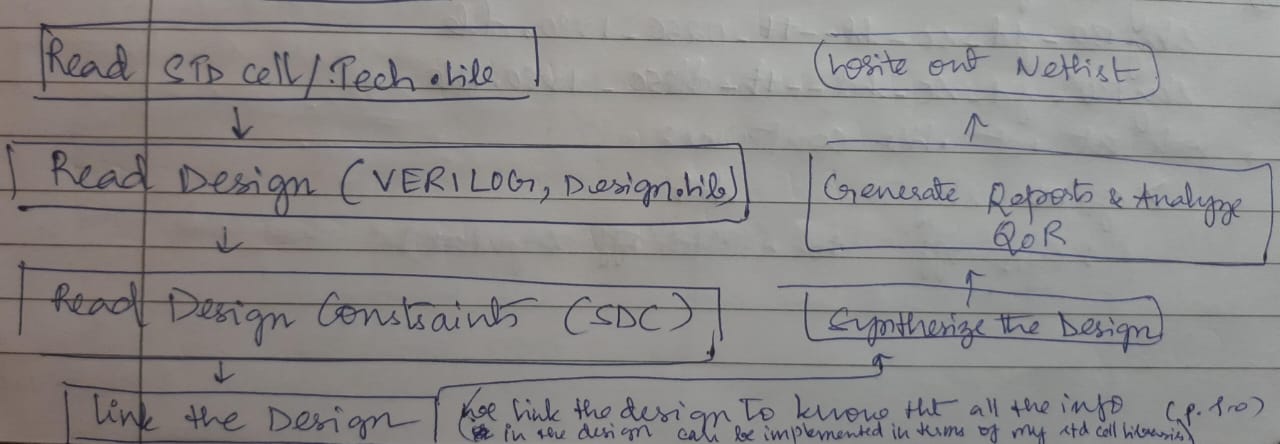 Read STD cell/.Tech.lib
Read Design (VERILOG, Design.lib)
Read Design Constraints (SDC)
Link the Design
(we link the design to know tht all the info
in the design can be implemented in terms of my std cell libraries
Synthesize the Design
Generate Reports & Analyze
QoR
Write out Netlist